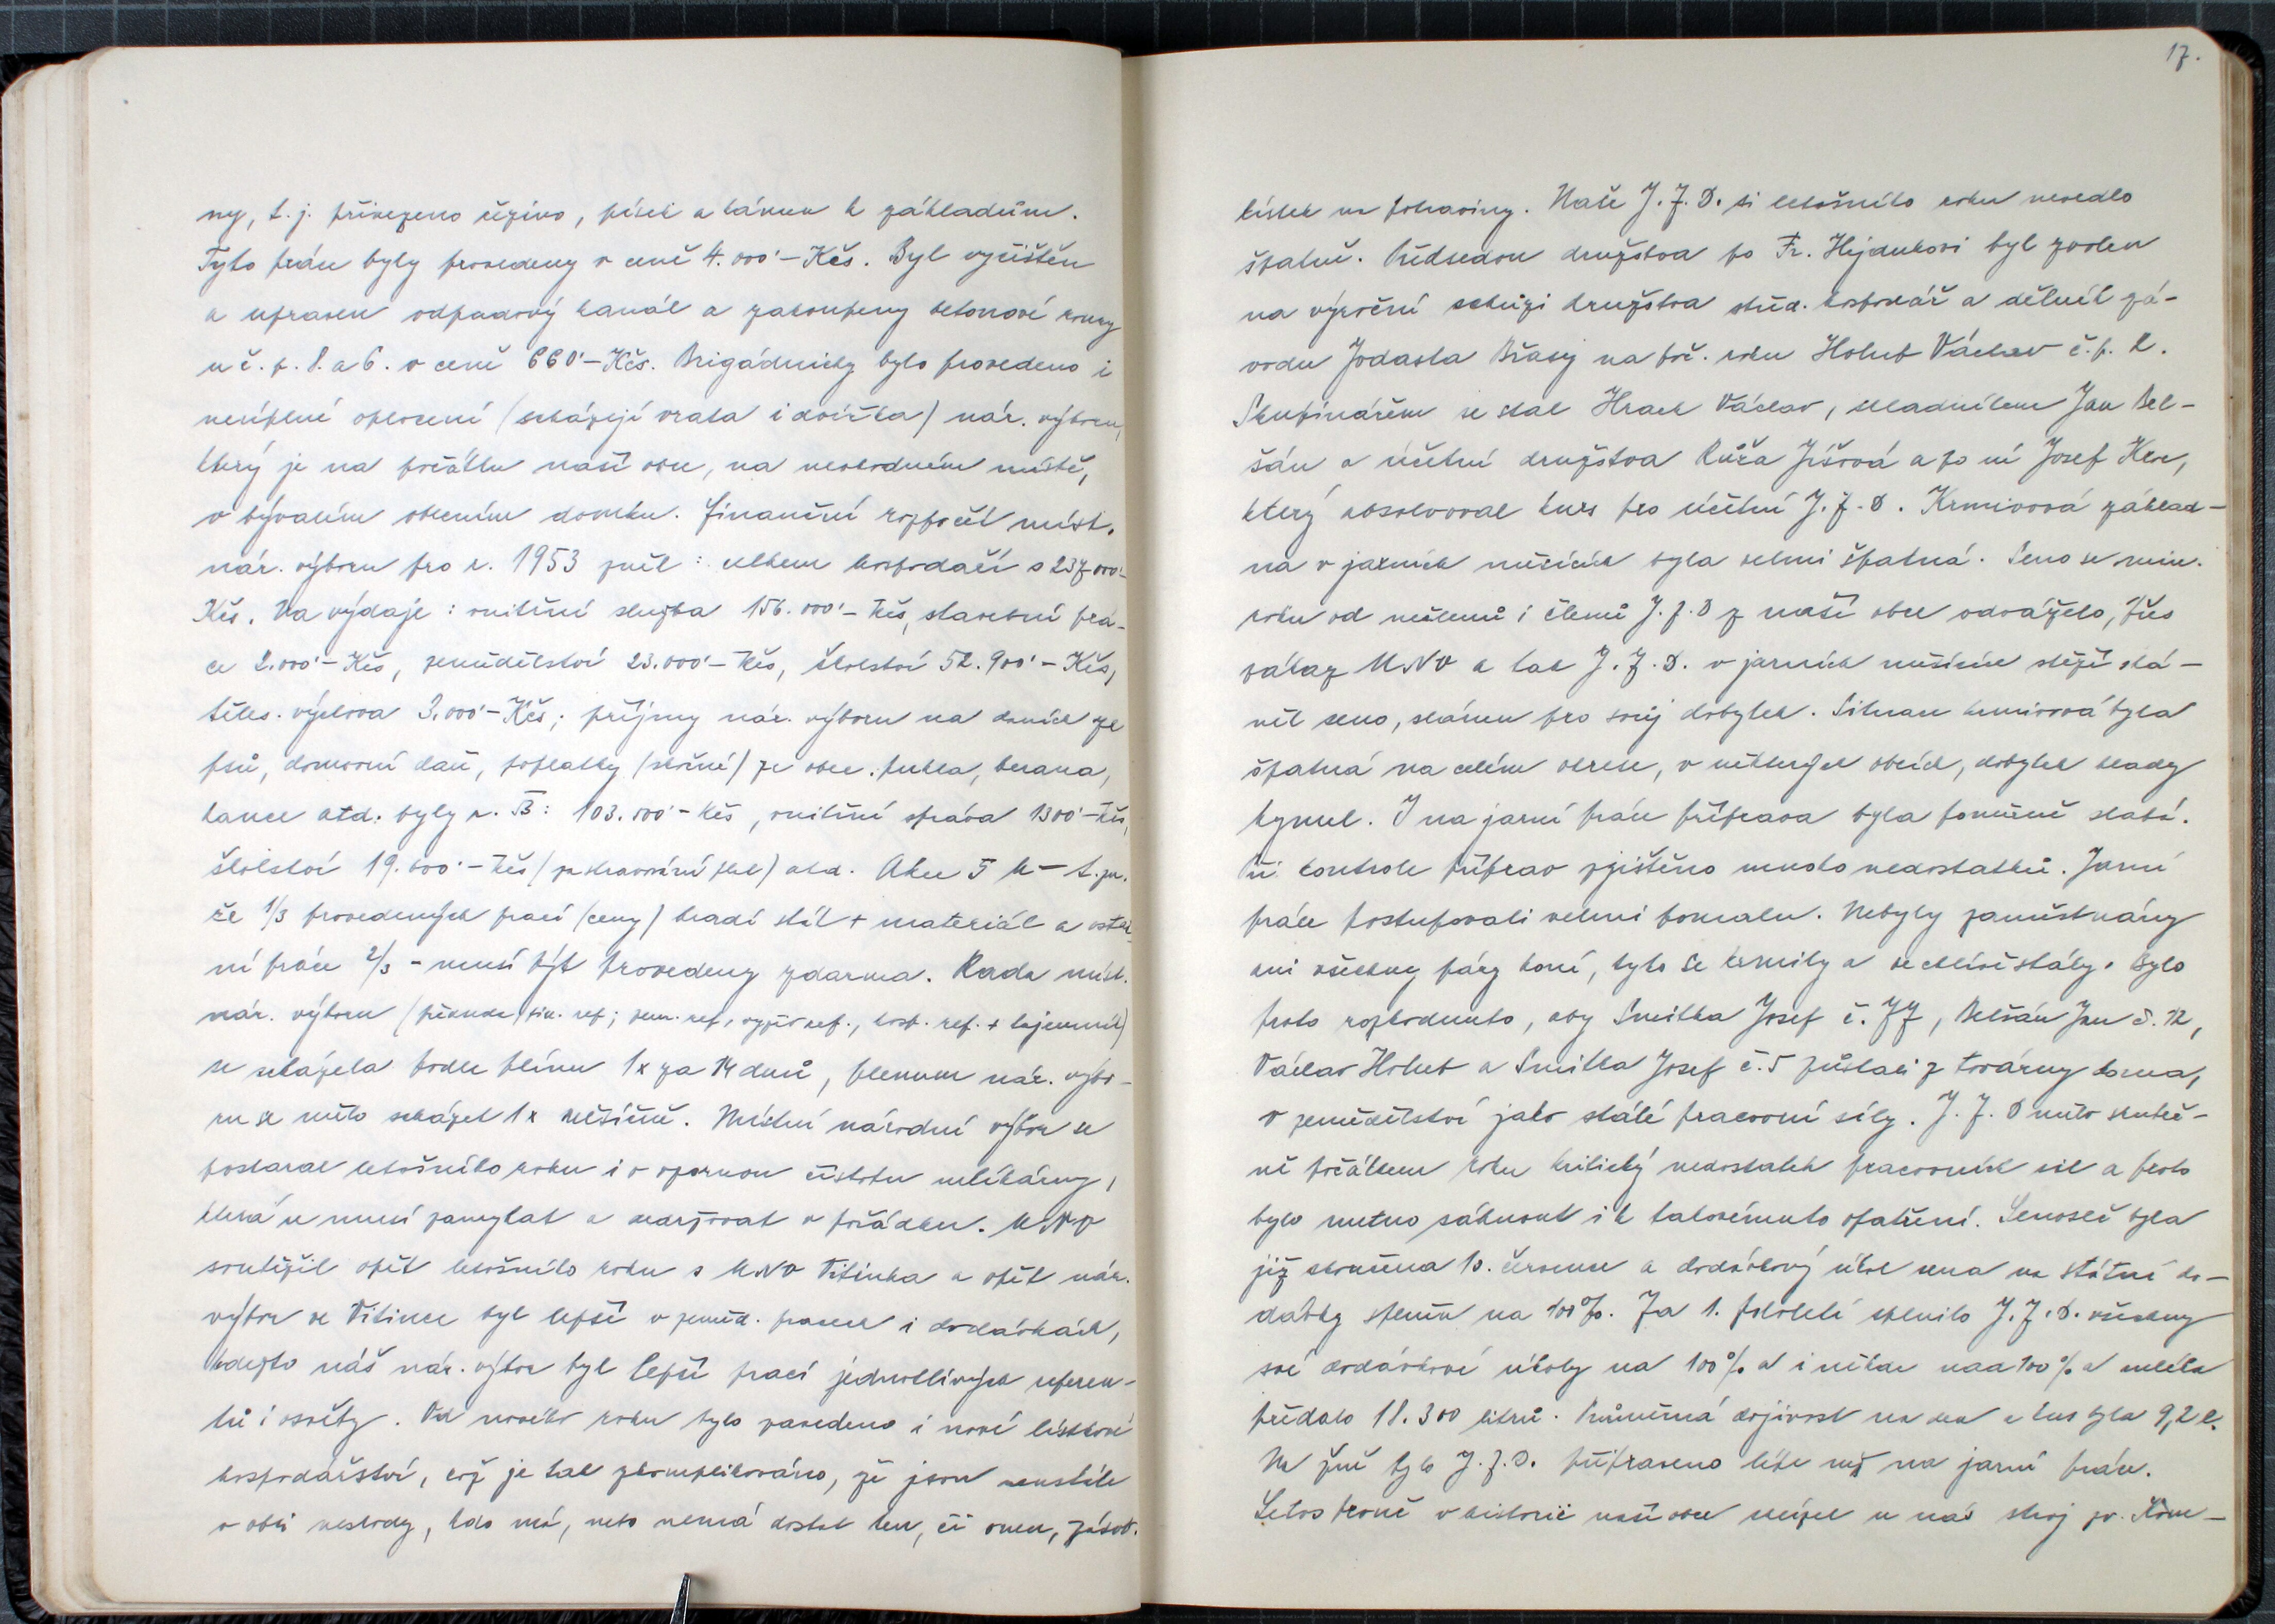 ny, t. j. přivezeno řezivo, písek a kámen k základům.
Tyto práce byly provedeny v ceně 4.000'- Kčs. Byl vyčištěn
a upraven odpadový kanál a zakoupeny betonové roury
u č. p. 8. a 6. v ceně 660'- Kčs. Brigádnicky bylo provedeno i
neúplné oplocení (scházejí vrata i dvířka) nár. výboru,
který je na počátku naší obce, na nevhodném místě,
v bývalém obecním domku. Finanční rozpočet míst.
nár. výboru pro r. 1953 zněl: celkem hospodaří s 237.000'-
Kčs. Na výdaje: vnitřní služba 156.000'- Kčs, stavební prá-
ce 2.000'- Kčs, zemědělství 23.000'- Kčs, školství 52.900'- Kčs,
těles. výchova 3.000'- Kčs; příjmy nár. výboru na daních ze
psů, domovní daň, poplatky (skočné) ze obec. pukla, berana,
kance atd. byly r. 53: 103.000'- Kčs, vnitřní správa 1300'- Kčs,
školství 19.600'- Kčs (za stravování škol) atd. Akce 5 M - t. zn.
že 1/3 provedených prací (ceny) hradí stát + materiál a ostat-
ní práce 2/3 - musí být provedeny zdarma. Rada míst.
nár. výboru (předseda, fin. ref; zem. ref, výživ. ref., hosp. ref. + tajemník)
se scházela podle plánu 1x za 14 dnů, plenum nár. výbo-
ru se mělo scházet 1x měsíčně. Místní národní výbor se
postaral letošního roku i o vzornou čistotu mlékárny,
která se musí zamykat a udržovat v pořádku. MNV
soutěžil opět letošního roku s MNV Vitinka a opět nár.
výbor ve Vitince byl lepší v zeměd. pracech i dodávkách,
kdežto náš nár. výbor byl lepší prací jednotlivých referen-
tů i osvěty. Od nového roku bylo zavedeno i nové lístkové
hospodářství, což je tak zkomplikováno, že jsou neustále
v obci neshody, kdo má, nebo nemá dostat ten, či onen, zásob.
17.
lístek na potraviny. Naše J. Z. D. si letošního roku nevedlo
špatně. Předsedou družstva po Fr. Hejdukovi byl zvolen
na výroční schůzi družstva střed. hospodář a dělník zá-
vodu Jodasta Břasy na poč. roku Holub Václav č. p. 2.
Skupinářem se stal Hrach Václav, skladníkem Jan Bel-
šán a účetní družstva Růža Jíšová a po ní Josef Kec,
který absolvoval kurs pro účetní J. Z. D. Krmivová základ-
na v jarních měsících byla velmi špatná. Seno se min.
roku od nečlenů i členů J. Z. D z naší obce odváželo, přes
zákaz MNV a tak J. Z. D. v jarních měsících stěží shá-
něl seno, slámu pro svůj dobytek. Situace krmivová byla
špatná na celém okrese, v některých obcích, dobytek hlady
hynul. I na jarní práce příprava byla poměrně slabá.
Při kontrole příprav zjištěno mnoho nedostatků. Jarní
práce postupovali velmi pomalu. Nebyly zaměstnány
ani všechny páry koní, tyto se krmily a ve chlévě stály. Bylo
proto rozhodnuto, aby Smitka Josef č. 77, Belšán Jan č. 12,
Václav Holub a Smitka Josef č. 5 zůstali z továrny doma,
v zemědělství jako stálé pracovní síly. J. Z. D mělo skuteč-
ně počátkem roku kritický nedostatek pracovních sil a proto
bylo nutno sáhnout i k takovémuto opatření. Senoseč byla
již skončena 10. července a dodávkový úkol sena na státní do-
dávky splněn na 100%. Za 1. pololetí splnilo J. Z. D. všechny
své dodávkové úkoly na 100% a i někde nad 100% a mléka
předalo 18.300 litrů. Průměrná dojivost na den a kus byla 9,2 l.
Na žně bylo J. Z. D. připraveno lépe než na jarní práce.
Letos prvně v historii naší obce sklízel u nás stroj zv. Kom-